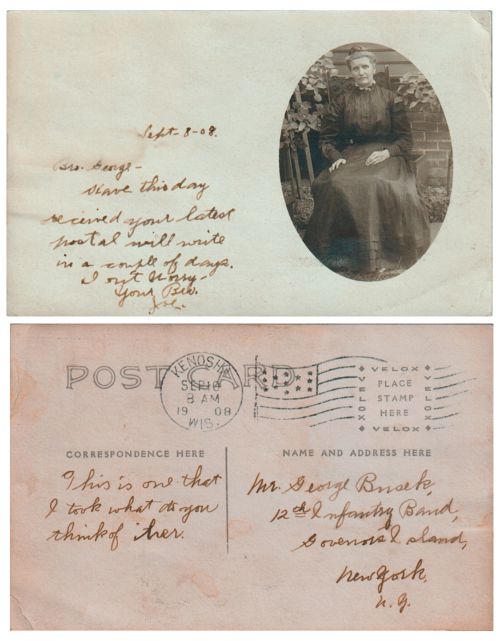 Sept- 8-08.
Bro. George-
Have this day
received your latest
postal will write
in a couple of days.
Don't Worry-
Your Bro.
Joe.
POST CARD
KENOSHA
SEP 10
8 AM
1908
WIS.
VELOX
PLACE
STAMP
HERE
VELOX
VELOX
VELOX
CORRESPONDENCE HERE
NAME AND ADDRESS HERE
This is one that
I took what do you
think of her.
Mr. George Busek,
12th Infantry Band,
Govenors Island,
New York,
N.Y.